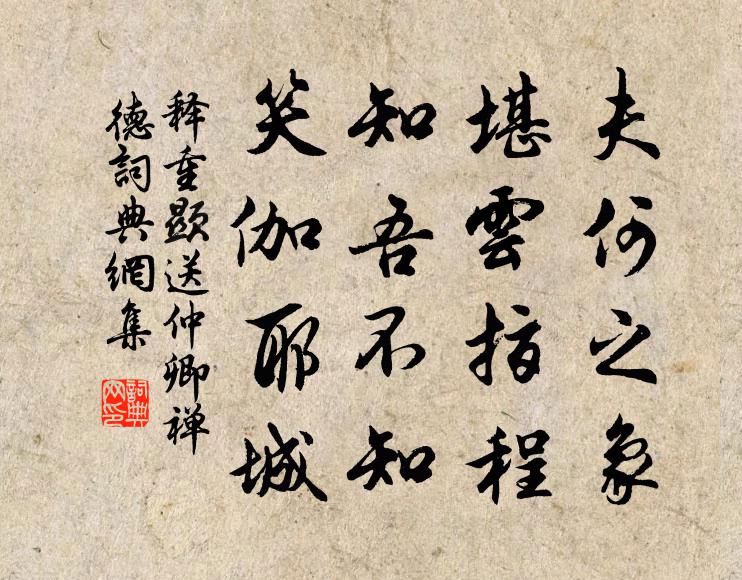 夫何之象
堪雲指程
知吾不知
笑伽耶城
释重顯送仲卿禅
德詞典網集
詞典
网印